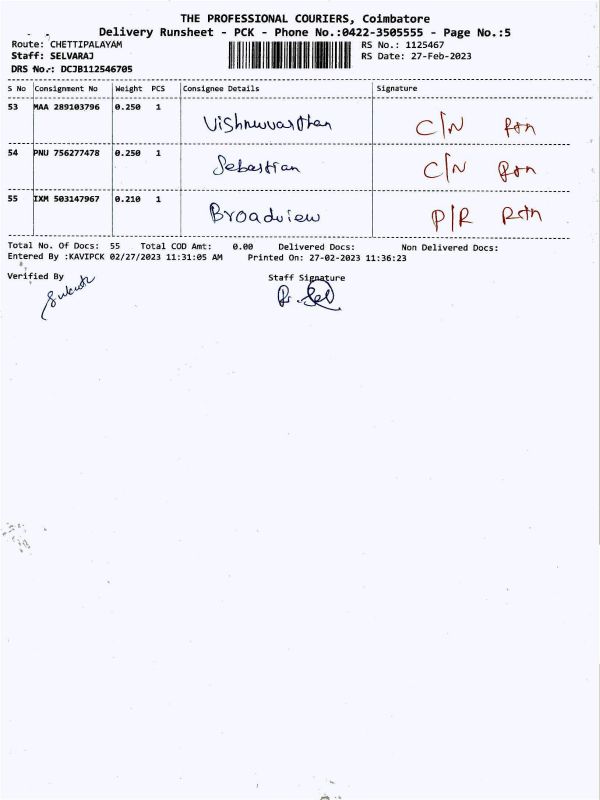 THE PROFESSIONAL COURIERS, Coimbatore
Delivery Runsheet - PCK - Phone No.:0422-3505555 - Page No.:5
Route: CHETTIPALAYAM RS No.: 1125467
Staff: SELVARAJ RS Date: 27-Feb-2023
DRS No.: DCJB112546705
S No Consignment No Weight PCS Consignee Details Signature
53 MAA 289103796 0.250 1 Vishnuvardhan C/N Rtn
54 PNU 756277478 0.250 1 Sebastian C/N Rtn
55 IXM 503147967 0.210 1 Broadview P/R Rtn
Total No. Of Docs: 55 Total COD Amt: 0.00 Delivered Docs: Non Delivered Docs:
Entered By :KAVIPCK 02/27/2023 11:31:05 AM Printed On: 27-02-2023 11:36:23
Verified By Staff Signature